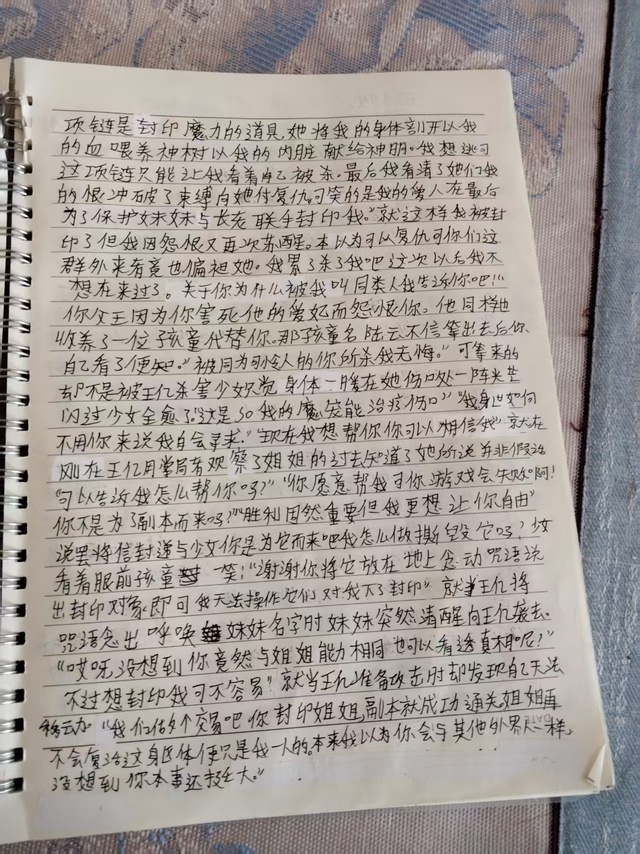 项链是封印魔力的道具,她将我的身体割开以我
的血喂养神树以我的内脏献给神明。我想逃可
这项链只能让我看着自己被杀。最后我看清了她们我
的恨冲破了束缚向她付复仇可笑的是我的爱人在最后
为了保护妹妹与长老联手封印我。”就这样我被封
印了但我因怨恨又再次苏醒。本以为可以复仇可你们这
群外来者竟也偏袒她。我累了杀了我吧这次以后我不
想在来过了。关于你为什么被我叫同类人我告诉你吧!“
你父王因为你害死他的爱妃而怨恨你。他同样也
收养了一位子孩童代替你。那孩童名陆云不信等出去后你
自己看了便知。”“被同为可怜人的你所杀我无悔。”可等来的
却不是被王亿杀害少女只觉身体一暖在她伤口处一阵光芒
闪过少女全愈了。“这是 我的魔发能治疗伤口”“我身世如何
不用你来说我自会寻求。”“现在我想帮你你可以相信我”就在
刚在王亿用掌局者观察了姐姐的过去知道了她所说并非假话
“可以告诉我怎么帮你吗?”“你愿意帮我可你游戏会失败啊!
你不是为了副本而来吗?”“胜利固然重要但我更想让你自由”
说罢将信封递与少女你是为它而来吧我怎么做撕毁它吗?女
看着眼前孩童 一笑;“谢谢你将它放在地上念动咒语说
出封印对象即可我无法操作它们对我下了封印”就当王亿将
咒语念出呼唤 妹妹名字时妹妹突然清醒向王亿袭去。
“哎呀没想到你竟然与姐姐能力相同也可以看透真相呢?”
不过想封印我可不容易”就当王亿准备攻击时却发现自己无法
“我们做个交易吧你封印姐姐,副本就成功通关,姐姐再
不会复活这身体便只是我一人的。本来我以为你会与其他外界人一样,
没想到你本事还挺大。”